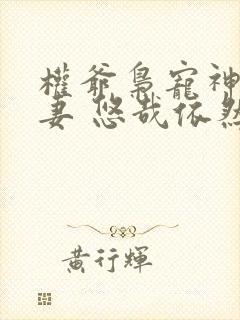 權爺梟寵神
妻 悠哉依然
黃行輝